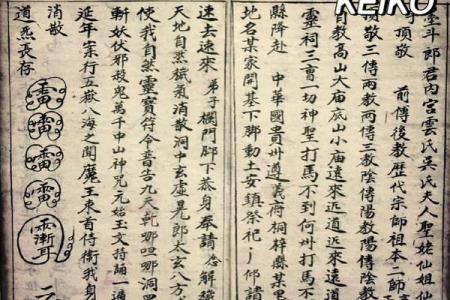 KEIKO
斗郎君內宮雲氏吳氏夫人聖姥仙姐仙
可頂敬 前傳後教歷代宗師祖本二師
頂敬三傳兩教兩傳三教陰傳陽教陽傳陰教
自敬高山大庙底山小庙遠來近道近來遠道
靈祠三曹一切神聖打馬不到何州打馬不
縣降赴 中華國貴州遵義府桐梓縣
地名某家問基下脚動土安鎮祭祀 仰請
速去速來 弟子攔門脚下恭身奉請 念解穢
天地自然穢氣消散洞中玄虛晃郎太玄八方
使我自然靈寶符命普告九天乾哪呾哪洞罡
斬妖伏邪殺鬼萬千中山神咒元始玉文持誦一遍
延年宗行五嶽八海之聞魔王束首侍衛我身
消散
道炁長存